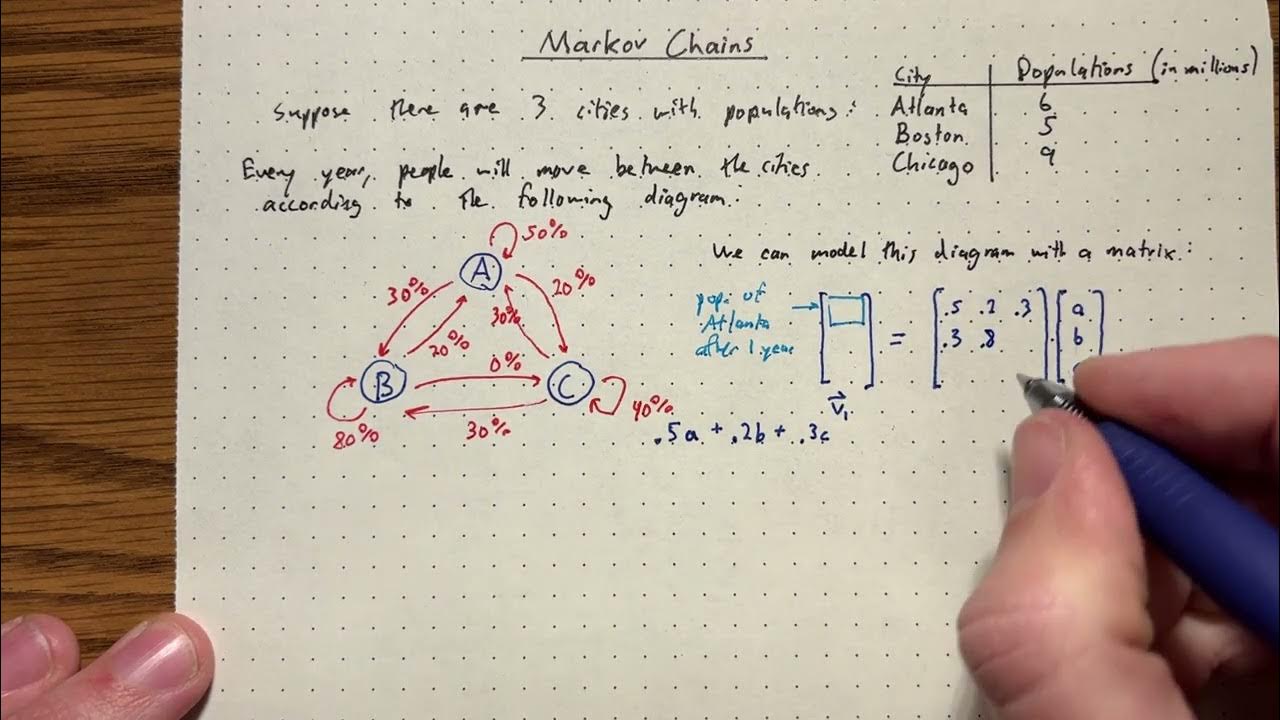 Markov Chains
Suppose there are 3 cities with populations:
City | Populations (in millions)
Atlanta | 6
Boston | 5
Chicago | 9
Every year, people will move between the cities
according to the following diagram:
50%
A
30%
20%
30%
20%
0%
B
C
80%
30%
40%
We can model this diagram with a matrix:
pop. of
Atlanta
after 1 year
=
.5 .2 .3
.3 .8
a
b
v₁
.5a + .2b + .3c